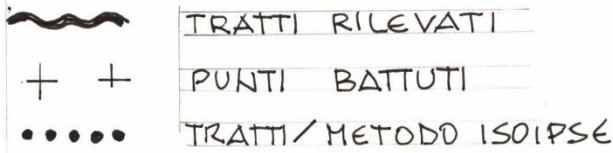 TRATTI RILEVATI
PUNTI BATTUTI
TRATTI/METODO ISOIPSE